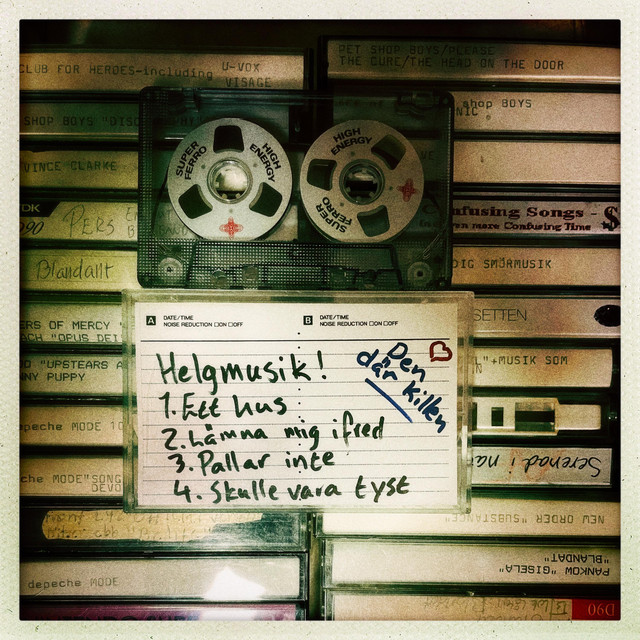 CLUB FOR HEROES-including U-VOX
VISAGE
SHOP BOYS "DISC
VINCE CLARKE
PERS
Blandant
ERS OF MERCY
ACH "OPUS DEI
"UPSTEARS A
NY PUPPY
peche MODE
che MODE"SONG
DEVO
depeche MODE
PET SHOP BOYS/PLEASE
THE CURE/THE HEAD ON THE DOOR
shop BOYS
nfusing Songs - $
n more Confusing Time
DIG SMÖRMUSIK
SETTEN
L"+MUSIK SOM
Serenad i na
NEW ORDER "SUBSTANCE"
PANKOW "GISELA"
"BLANDAT"
D90
SUPER FERRO
HIGH ENERGY
HIGH ENERGY
SUPER FERRO
A DATE/TIME
NOISE REDUCTION ON OFF
B DATE/TIME
NOISE REDUCTION ON OFF
Helgmusik!
Den
där killen
1. Ett hus
2. Lämna mig ifred
3. Pallar inte
4. Skulle vara tyst